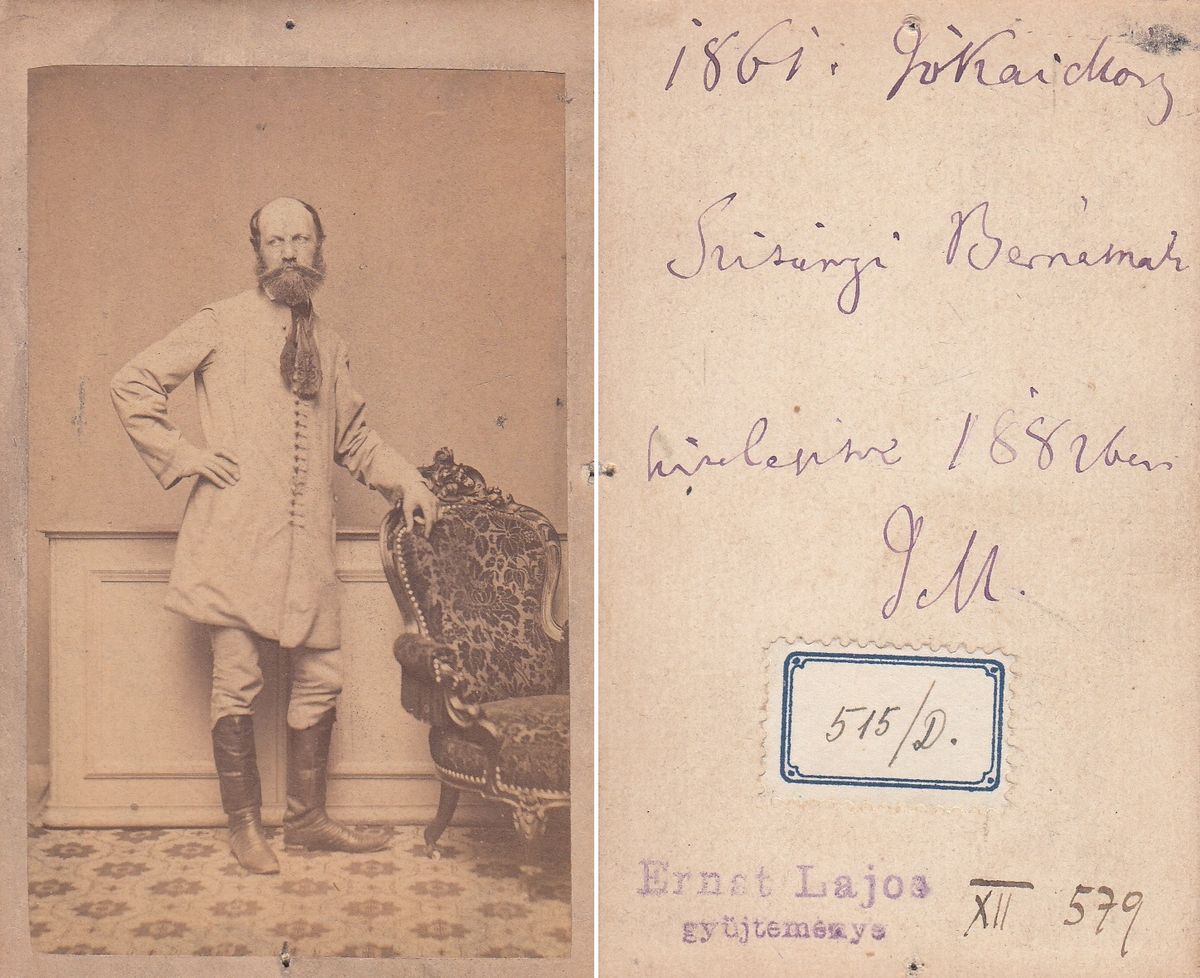 1861. Jókai Mór
Szitányi Bernátnak
hiselepitve 1882ben
J M.
515/D.
Ernst Lajos
gyüjteménye
XII 579